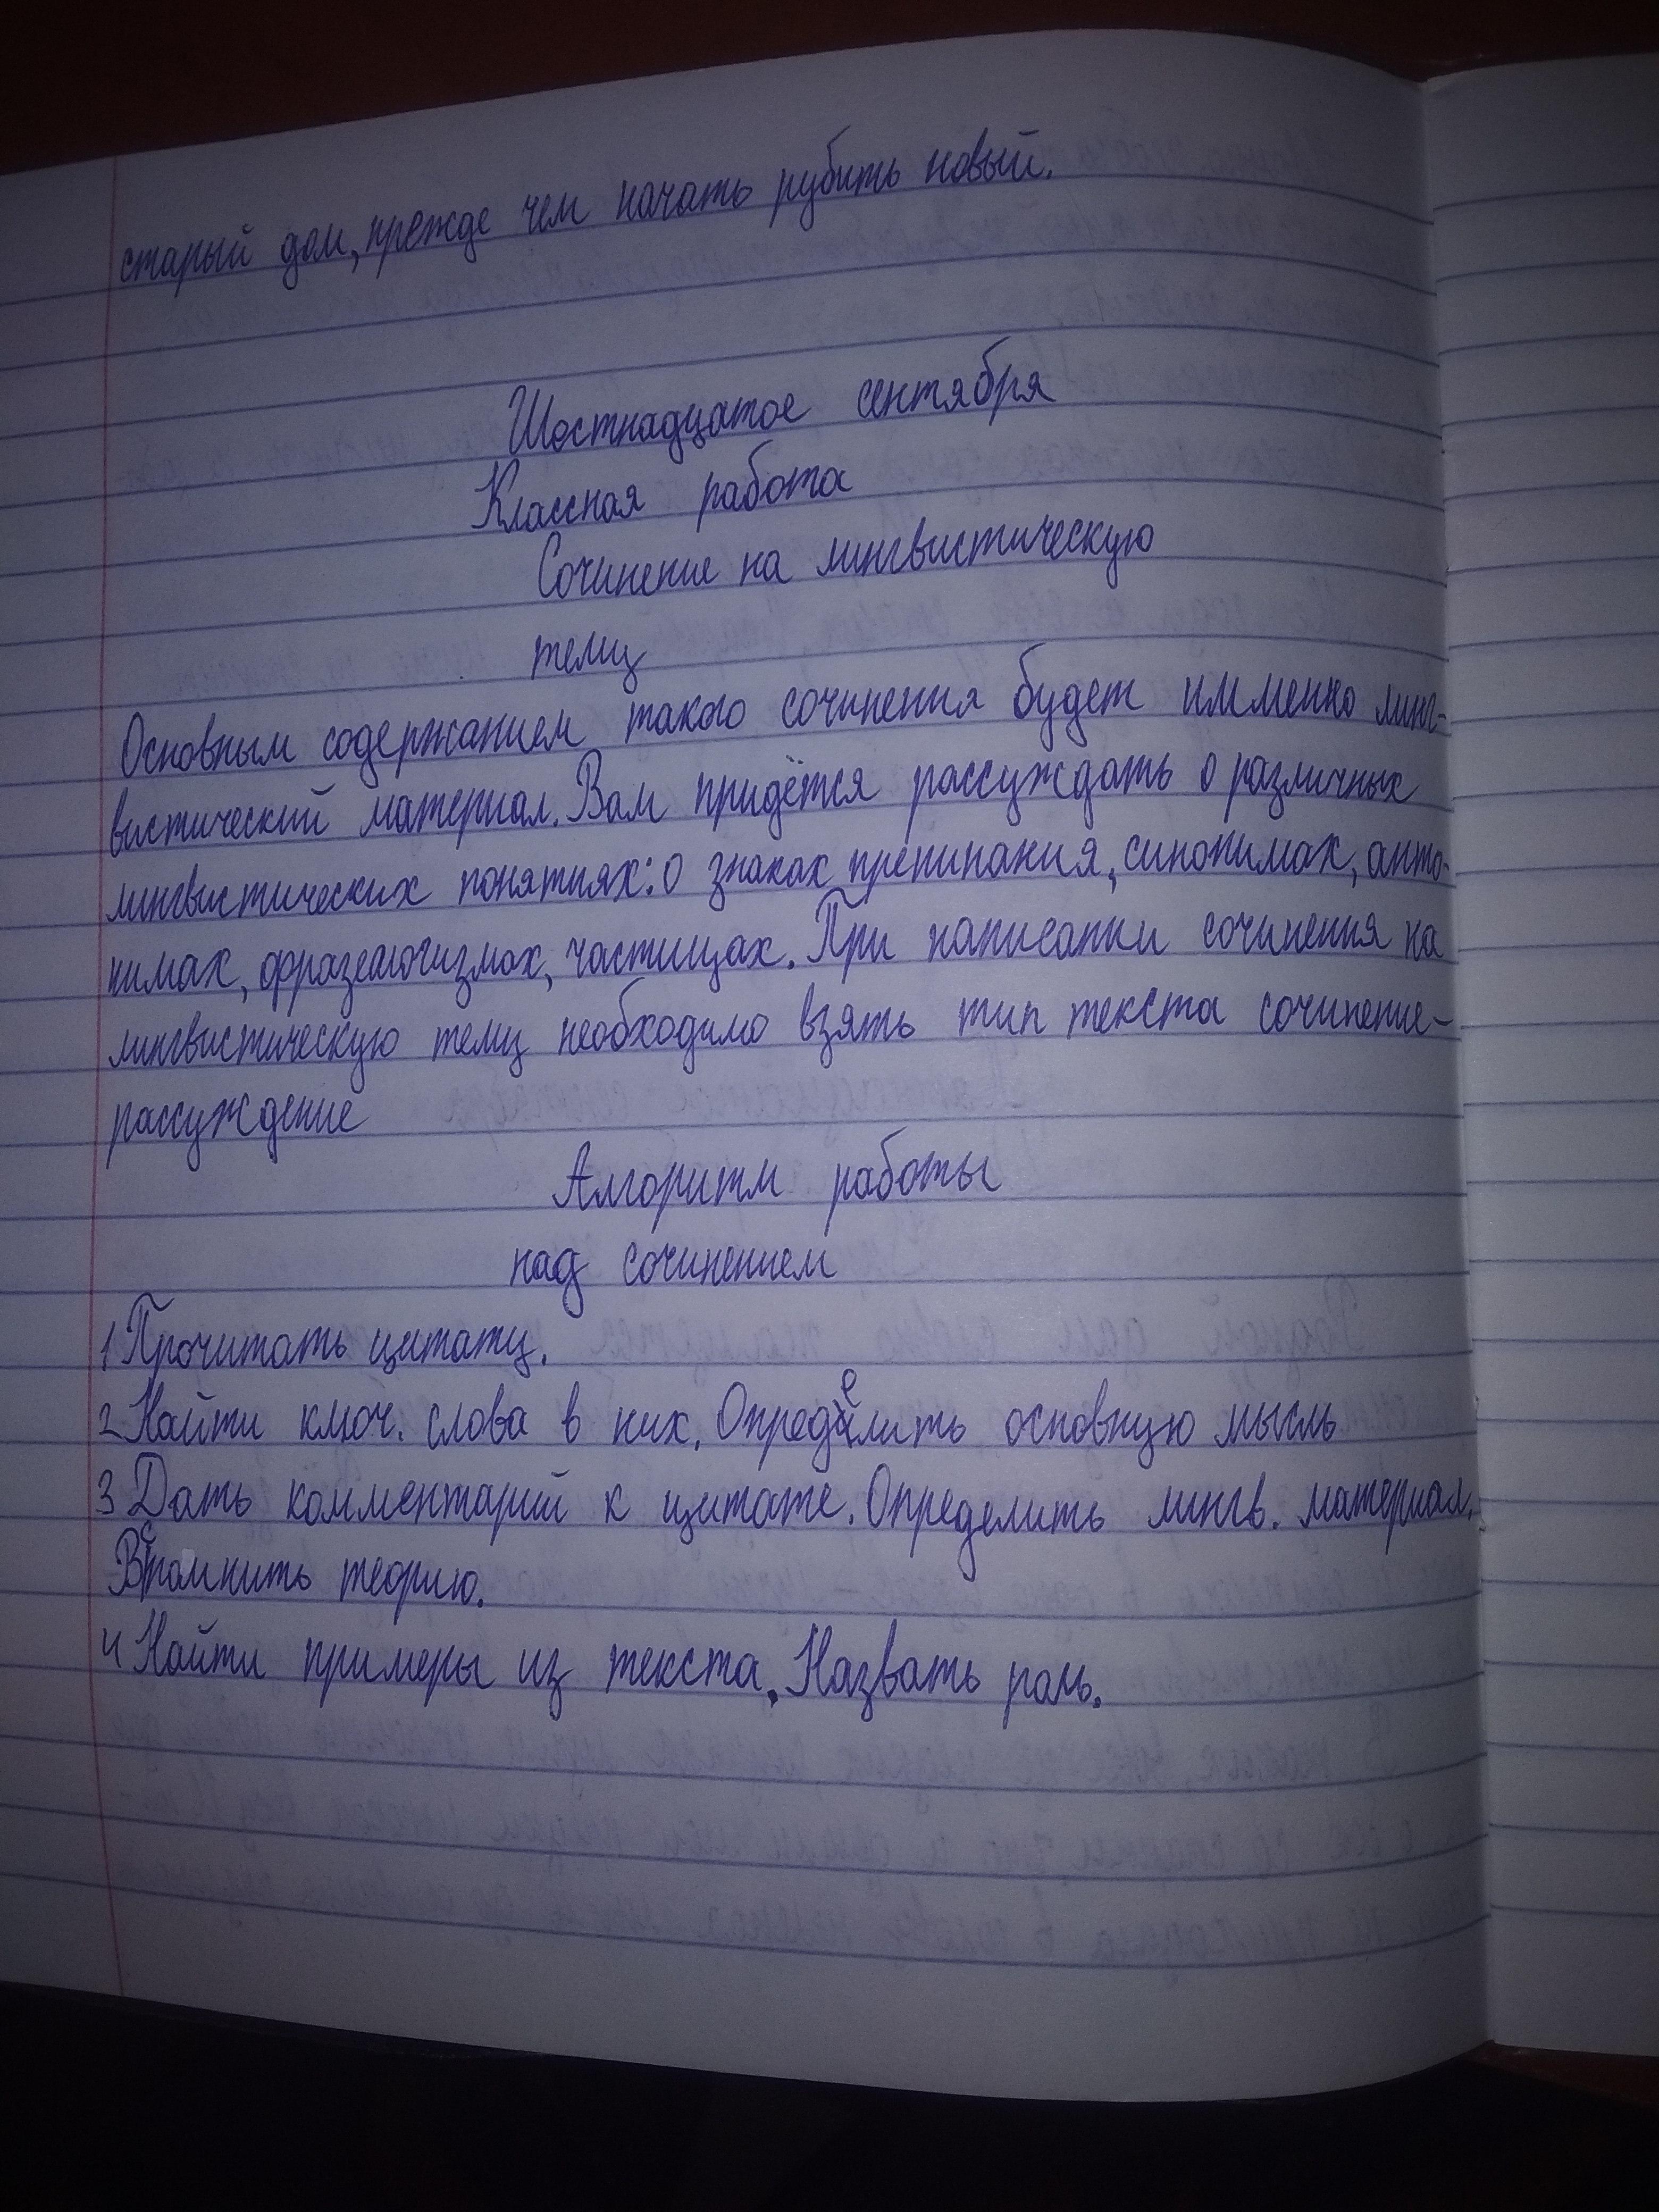 старый дом, прежде чем начать рубить новый.
Шостнадцатое сентября
Классная работа
Сочинение на лингвистическую
тему
Основным содержанием такого сочинения будет имменно линг-
вистический материал. Вам придётся рассуждать о различных
лингвистических понятиях: о знаках препинания, синонимах, анто-
нимах, фразеологизмах, частицах. При написании сочинения на
лингвистическую тему необходимо взять тип текста сочинение-
рассуждение
Алгоритм работы
над сочинением
1 Прочитать цитату.
2 Найти ключ. слова в них. Определить основную мысль
3 Дать комментарий к цитате. Определить лингв. материал.
Вспомнить теорию.
4 Найти примеры из текста. Назвать роль.